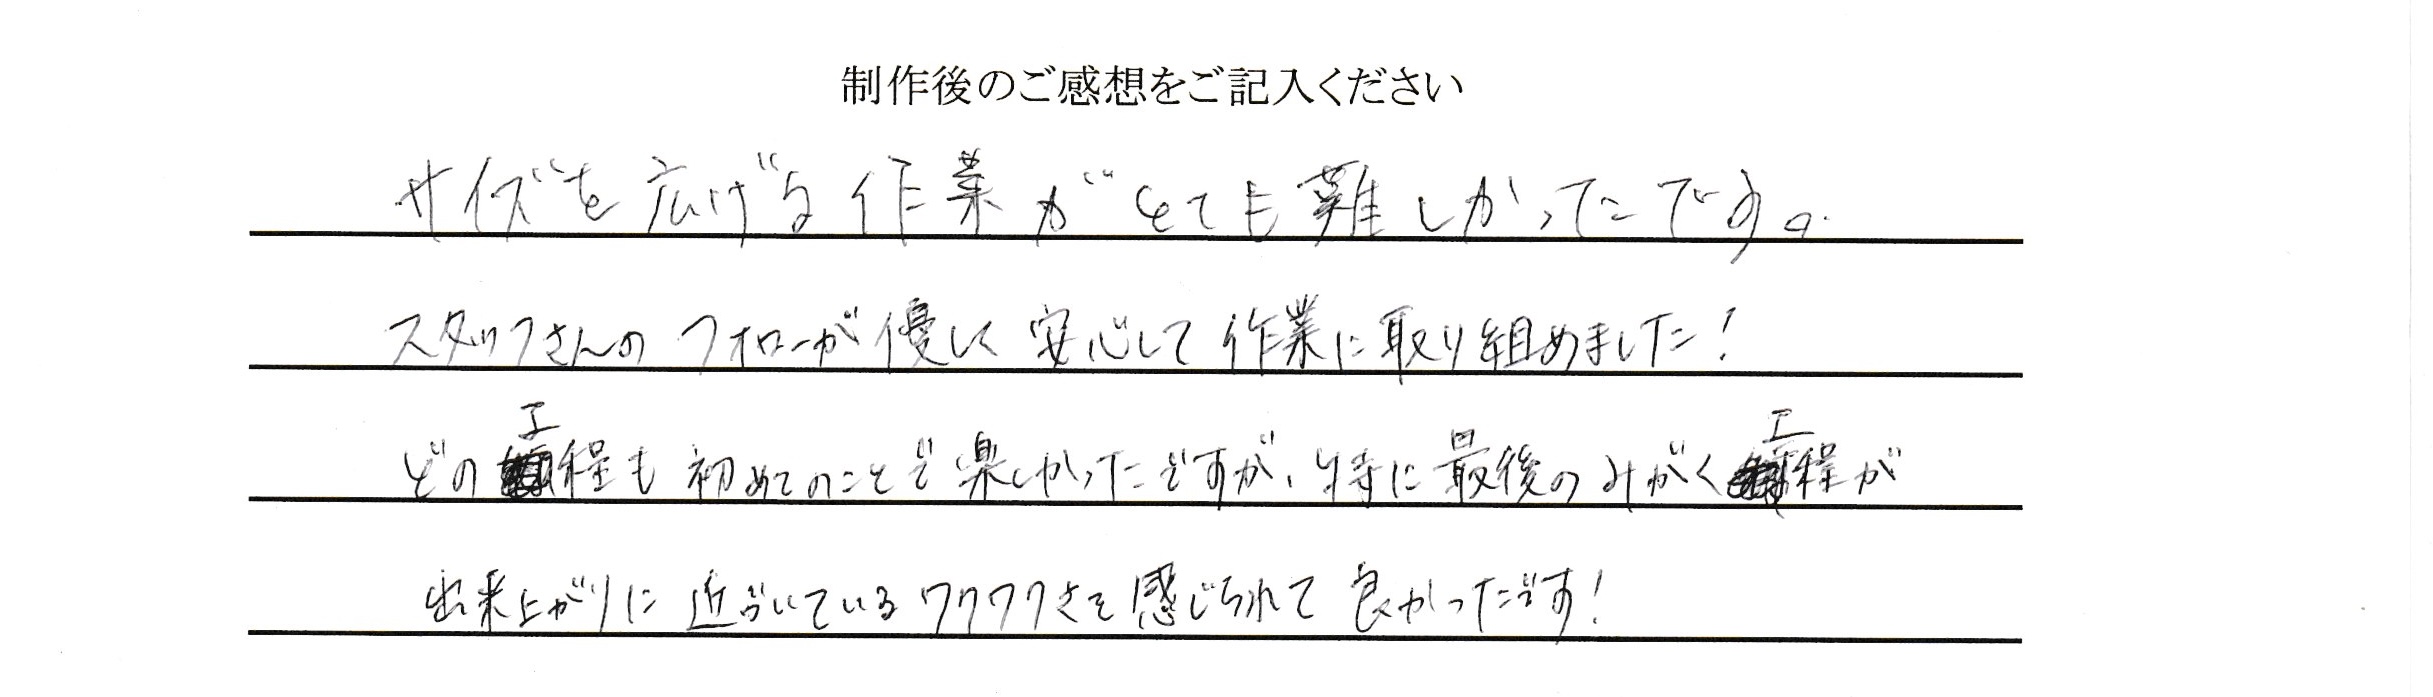 制作後のご感想をご記入ください
サイズを広げる作業がとても難しかったです。
スタッフさんのフォローが優しく安心して作業に取り組めました!
どの工程も初めてのことで楽しかったですが、特に最後のみがく工程が
出来上がりに近づいているワクワクさを感じられて良かったです!